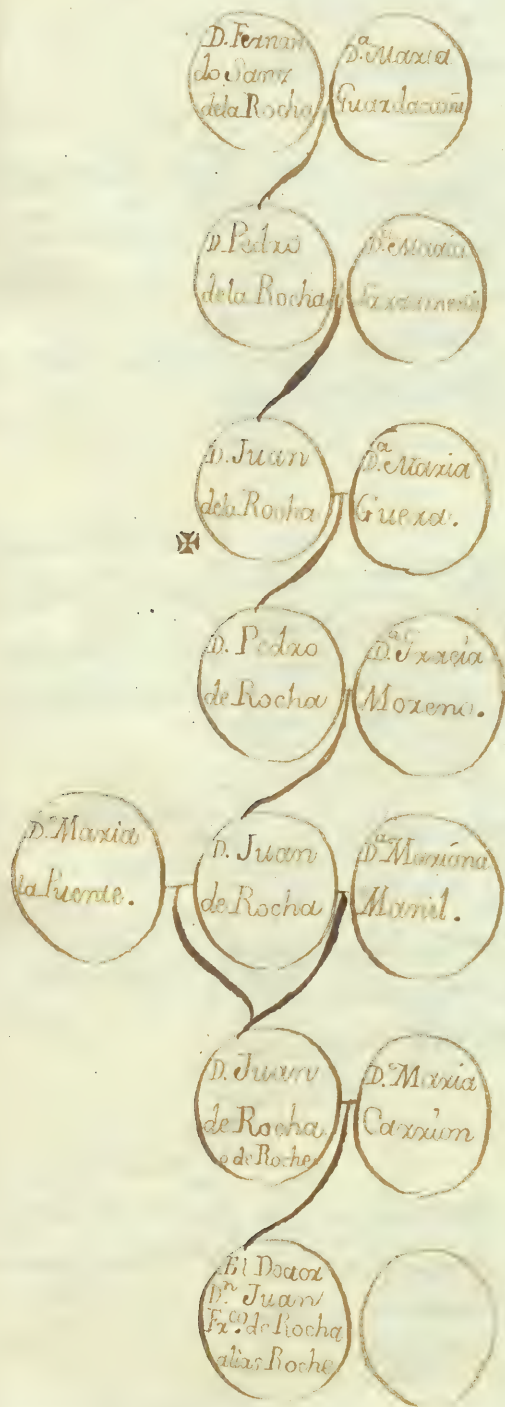 D. Fernan
do Sanz
de la Rocha
D.ª Maria
D. Pedro
de la Rocha
D.ª Maria
D. Juan
de la Rocha
D.ª Maria
Guerra.
D. Pedro
de Rocha
D.ª
Moreno.
D.ª Maria
la Puente.
D. Juan
de Rocha
D.ª Mariana
D. Juan
de Rocha
o de Roche
D.ª Maria
El Doctor
D.ⁿ Juan
Fr.ᶜᵒ de Rocha
alias Roche